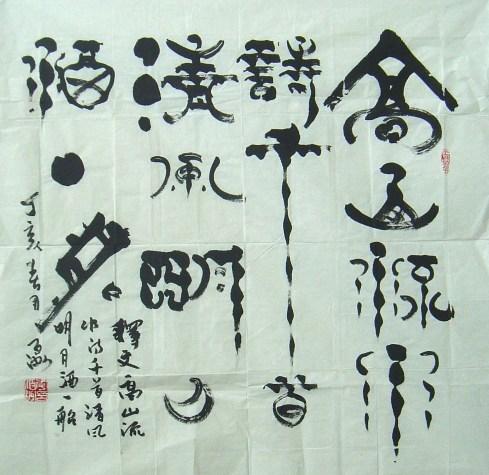 高山流水
詩千首
清風明月
酒一船
釋文高山流
水诗千首清风
明月酒一船
丁亥春月